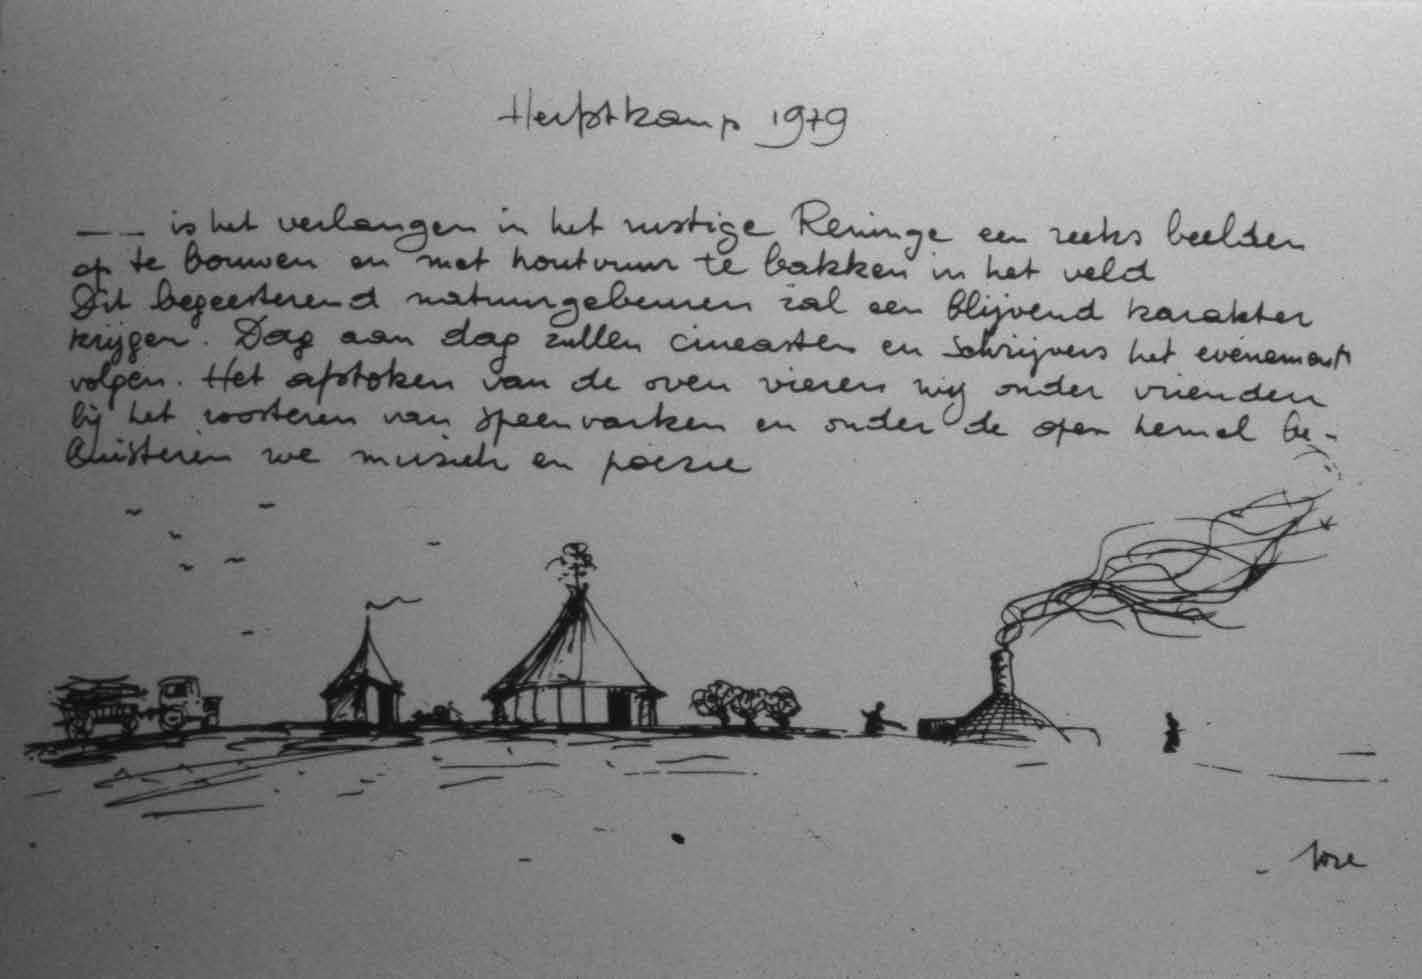 Herfstkamp 1979
—— is het verlangen in het rustige Reninge een reeks beelden
op te bouwen en met houtvuur te bakken in het veld
Dit begeesterend natuurgebeuren zal een blijvend karakter
krijgen. Dag aan dag zullen cineasten en schrijvers het evenement
volgen. Het afstoken van de oven vieren wij onder vrienden
bij het roosteren van speenvarken en onder de open hemel be-
luisteren we muziek en poëzie